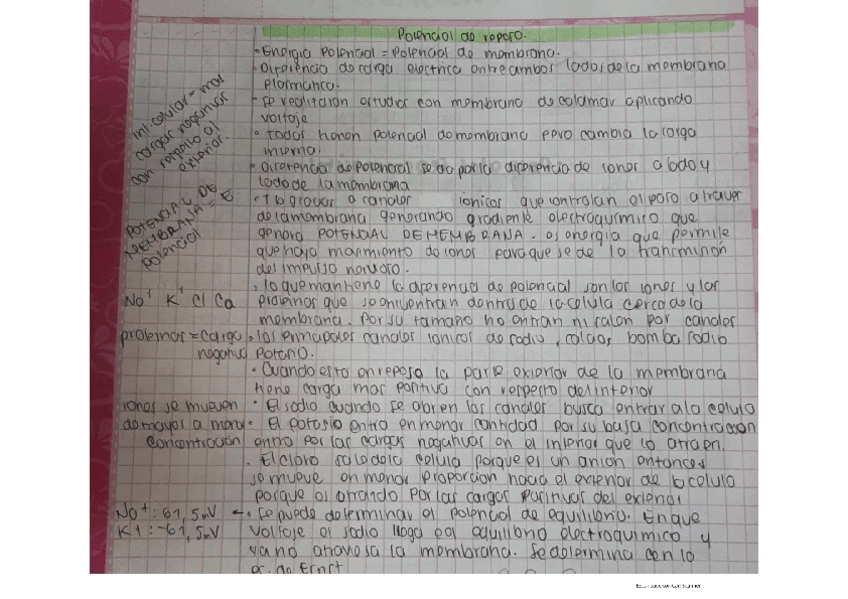 Potencial de reposo.
• Energia Potencial = Potencial de membrana.
• Diferencia de carga electrica entre ambos lados de la membrana
plasmatica.
• Se realizaron estudios con membrana de calamar aplicando
voltaje
• Todas tienen potencial de membrana pero cambia la carga
interna.
• Diferencia de potencial se da por la diferencia de iones a lado y
lado de la membrana
gracias a canales ionicos que controlan el paso a traves
de la membrana generando gradiente electroquimico que
genera POTENCIAL DE MEMBRANA. es energia que permite
que haya movimiento de iones para que se de la transmision
del impulso nervioso.
• lo que mantiene la diferencia de potencial son los iones y las
proteinas que se encuentran dentro de la celula cerca de la
membrana. Por su tamaño no entran ni salen por canales
• los principales canales ionicos de sodio, calcio, bomba sodio
potasio.
• Cuando esta en reposo la parte exterior de la membrana
tiene carga mas positiva con respecto del interior
• El sodio cuando se abren los canales busca entrar a la celula
• El potasio entra en menor cantidad por su baja concentracion
entra por las cargas negativas en el interior que lo atraen.
• El cloro sale de la celula porque es un anion entonces
se mueve en menor proporcion hacia el exterior de la celula
porque es atraido por las cargas positivas del exterior
← • Se puede determinar el potencial de equilibrio. En que
voltaje el sodio llega al equilibrio electroquimico y
ya no atraviesa la membrana. Se determina con la
ec. de Ernst
int. celular = mas
cargas negativas
con respecto al
exterior.
POTENCIAL DE
MEMBRANA = E.
potencial
Na⁺ K⁺ Cl Ca
proteinas = carga
negativa
iones se mueven
de mayor a menor
concentración
Na⁺: 61,5mV
K⁺: -61,5mV